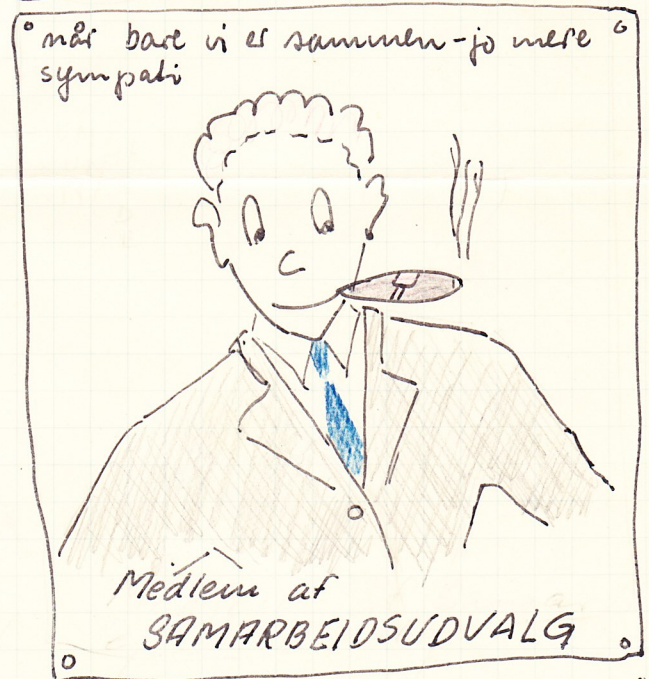 når bare vi er sammen - jo mere
sympati
Medlem af
SAMARBEJDSUDVALG